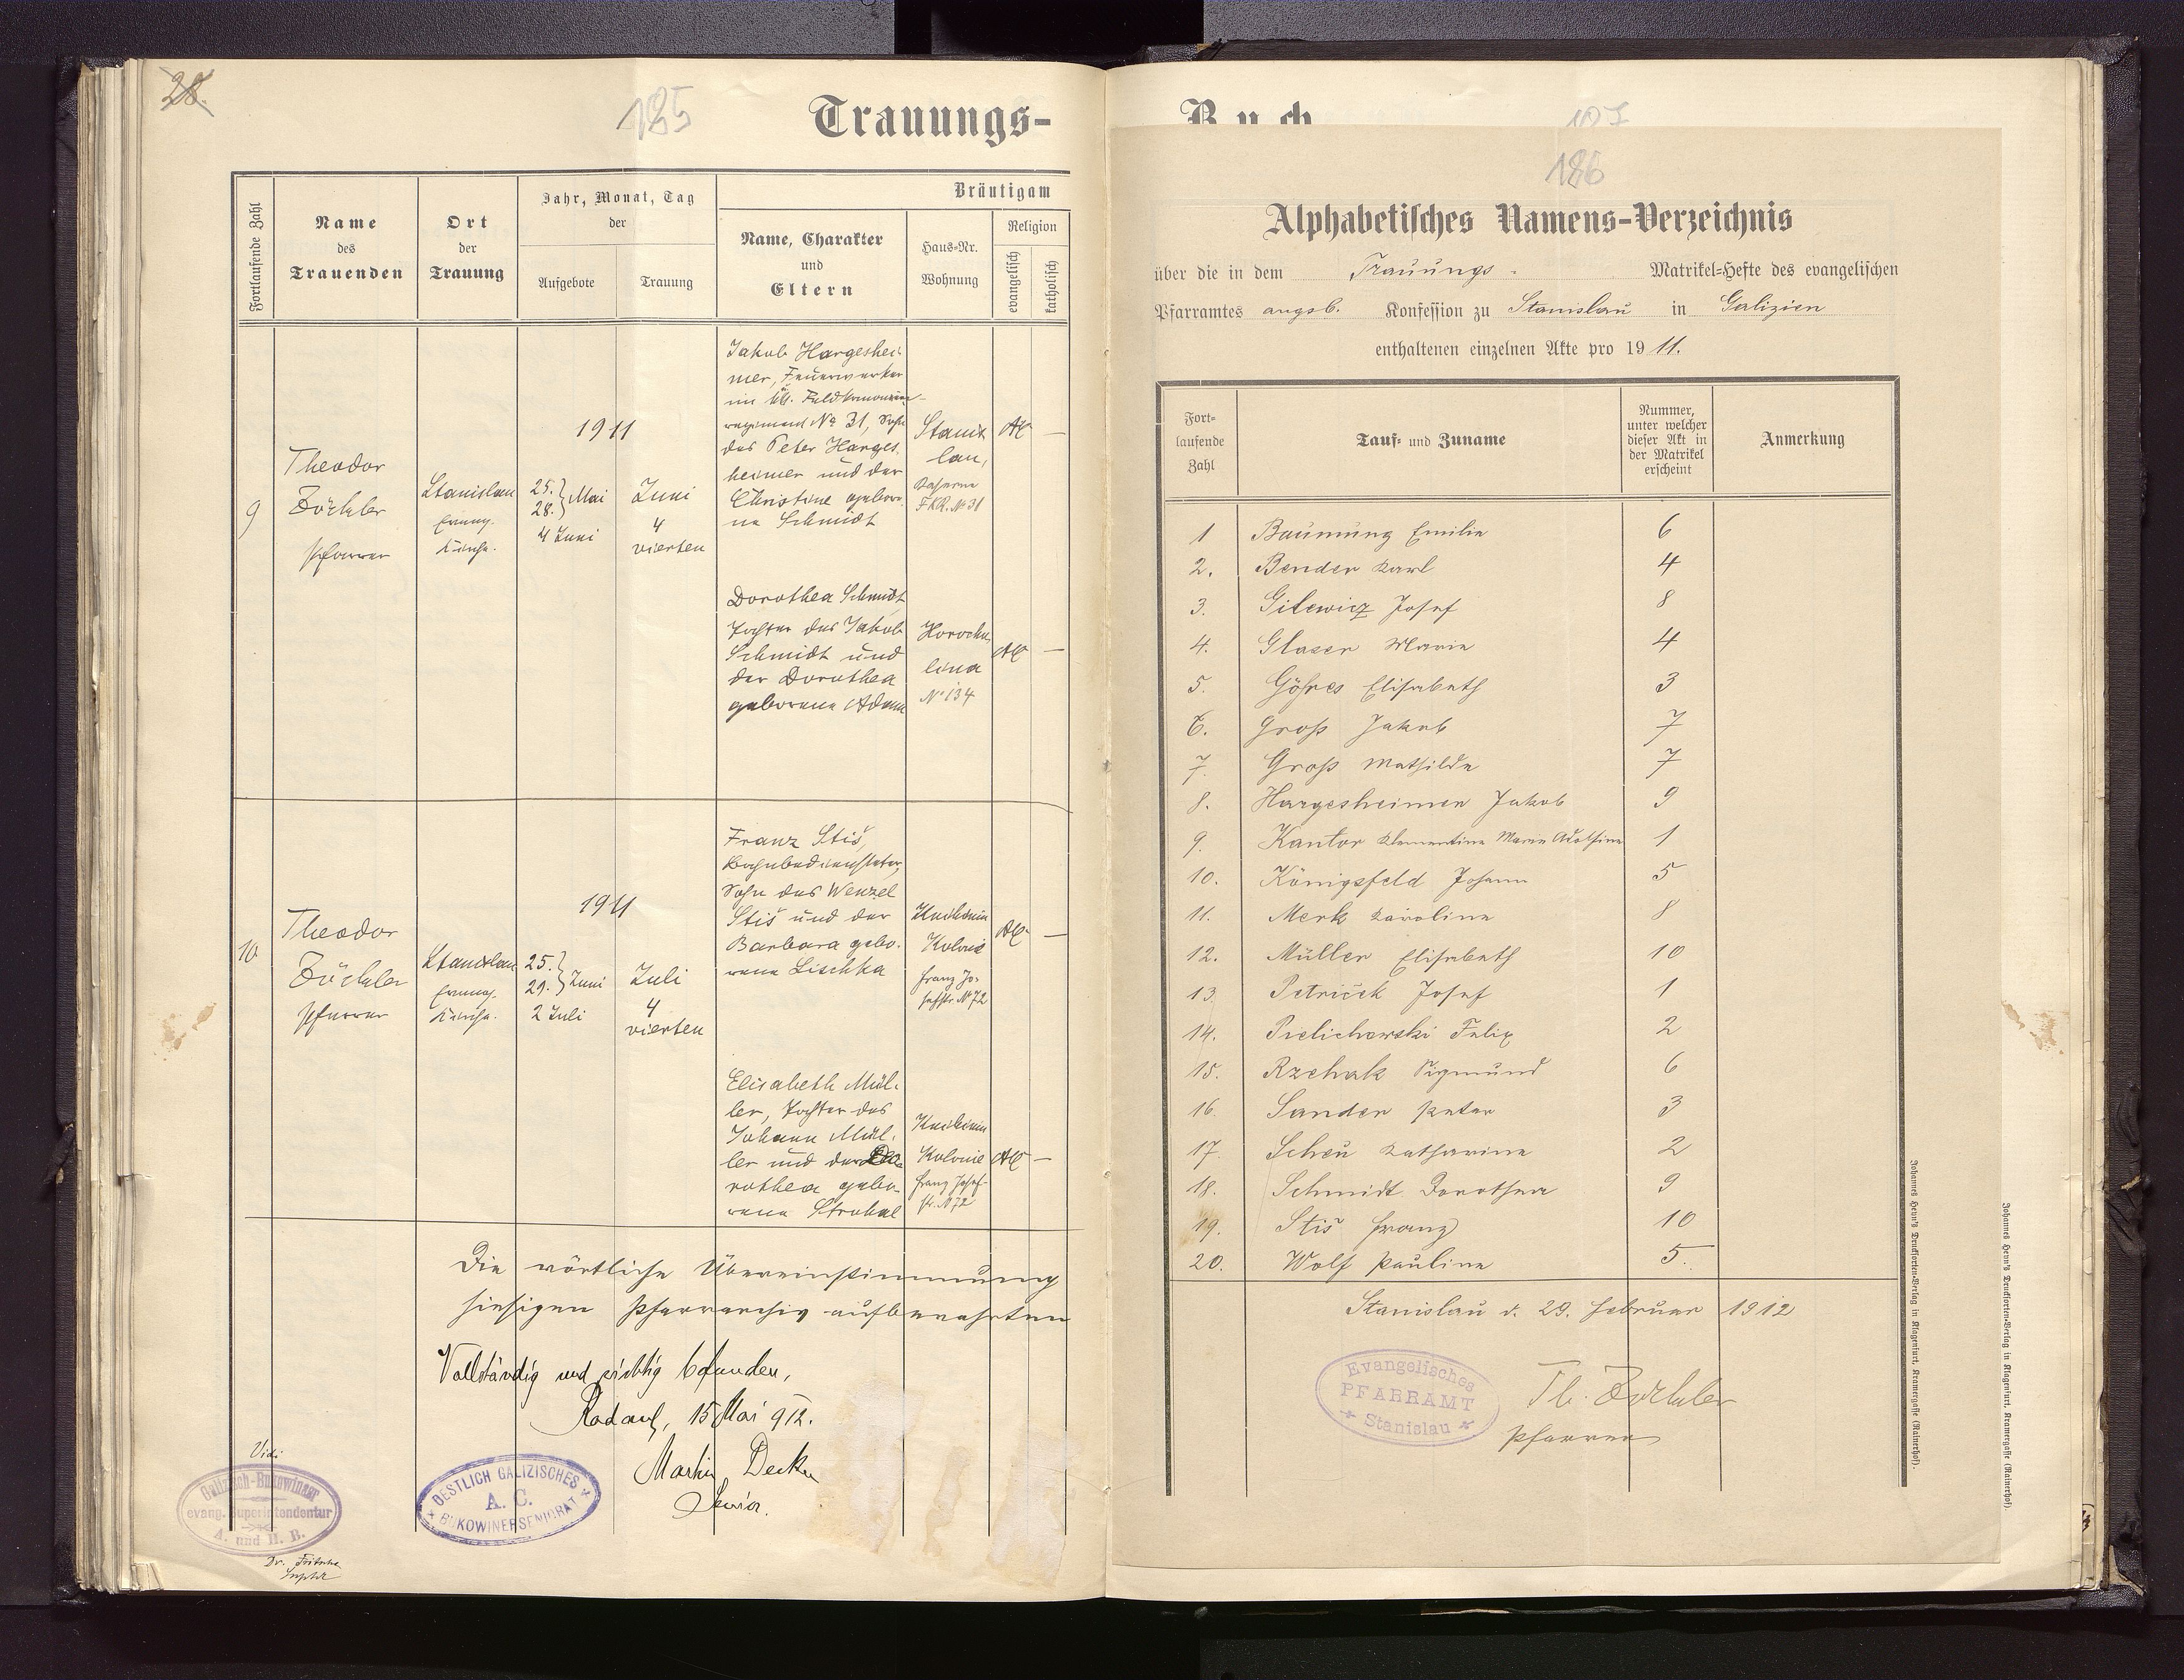 28.
185
Trauungs-
Fortlaufende Zahl
Name
des
Trauenden
Ort
der
Trauung
Jahr, Monat, Tag
der
Aufgebote
Trauung
Bräutigam
Name, Charakter
und
Eltern
Haus-Nr.
Wohnung
Religion
evangelisch
katholisch
9
Theodor
Zöckler
Pfarrer
Stanislau
evang.
Kirche.
1911
25.
28. } Mai
4 Juni
Juni
4
vierten
Jakob Hargeshei-
mer, Feuerwerker
im k.k. Feldkanonen-
regiment No 31, Sohn
des Peter Harges-
heimer und der
Christine gebore-
ne Schmidt
Stanis
lau,
Kaserne
FKR. No 31
AC —
Dorothea Schmidt
Tochter des Jakob
Schmidt und
der Dorothea
geborene Adam
Horocho
lina
No 134
AC —
10
Theodor
Zöckler
Pfarrer
Stanislau
evang.
Kirche.
1911
25.
29. } Juni
2 Juli
Juli
4
vierten
Franz Stiš,
Bahnbediensteter,
Sohn des Wenzel
Stiš und der
Barbara gebo-
rene Lischka
Knihinin
Kolonie
Franz Jo-
sefstr. No 72
AC —
Elisabeth Mül-
ler, Tochter des
Johann Mül-
ler und der Do-
rothea gebo-
rene Strohal
Knihinin
Kolonie
Franz Josef-
str. No 72
AC —
Die wörtliche Übereinstimmung
hiesigen Pfarrarchiv aufbewahrten
Vollständig und richtig befunden,
Radautz, 15 Mai 912.
Martin Decker
Senior.
Vidi
Galizisch-Bukowiner
evang. Superintendentur
A. und H. B.
Dr. Fritsche
Suptdt
OESTLICH GALIZISCHES
A. C.
BUKOWINER SENIORAT
Buch
187
186
Alphabetisches Namens-Verzeichnis
über die in dem Trauungs- Matrikel-Hefte des evangelischen
Pfarramtes augsb. Konfession zu Stanislau in Galizien
enthaltenen einzelnen Akte pro 1911.
Fort-
laufende
Zahl
Tauf- und Zuname
Nummer,
unter welcher
dieser Akt in
der Matrikel
erscheint
Anmerkung
1 Baumung Emilie 6
2. Bender Karl 4
3. Gilewicz Josef 8
4. Glaser Marie 4
5. Göhres Elisabeth 3
6. Groß Jakob 7
7. Groß Mathilde 7
8. Hargesheimer Jakob 9
9. Kantor Klementine Marie Adolfine 1
10. Königsfeld Johann 5
11. Merk Karoline 8
12. Müller Elisabeth 10
13. Petriček Josef 1
14. Pielichowski Felix 2
15. Rzehak Sigmund 6
16. Sander Peter 3
17. Scheu Katharina 2
18. Schmidt Dorothea 9
19. Stiš Franz 10
20. Wolf Pauline 5.
Stanislau d. 29. Februar 1912
Evangelisches
PFARRAMT
Stanislau
Th. Zöckler
Pfarrer
Johannes Heyn's Drucksorten-Verlag in Klagenfurt, Kramergasse (Rainerhof).
Johannes Heyn's Drucksorten-Verlag in Klagenfurt, Kramergasse (Rainerhof).